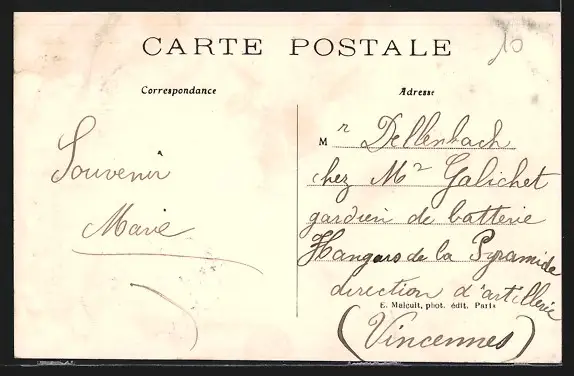 10
CARTE POSTALE
Correspondance
Adresse
Souvenir
Marie
Mr Dellenbach
chez Mr Galichet
gardien de batterie
Hangars de la Pyramide
direction d'artillerie
E. Malcuit, phot. édit. Paris
(Vincennes)